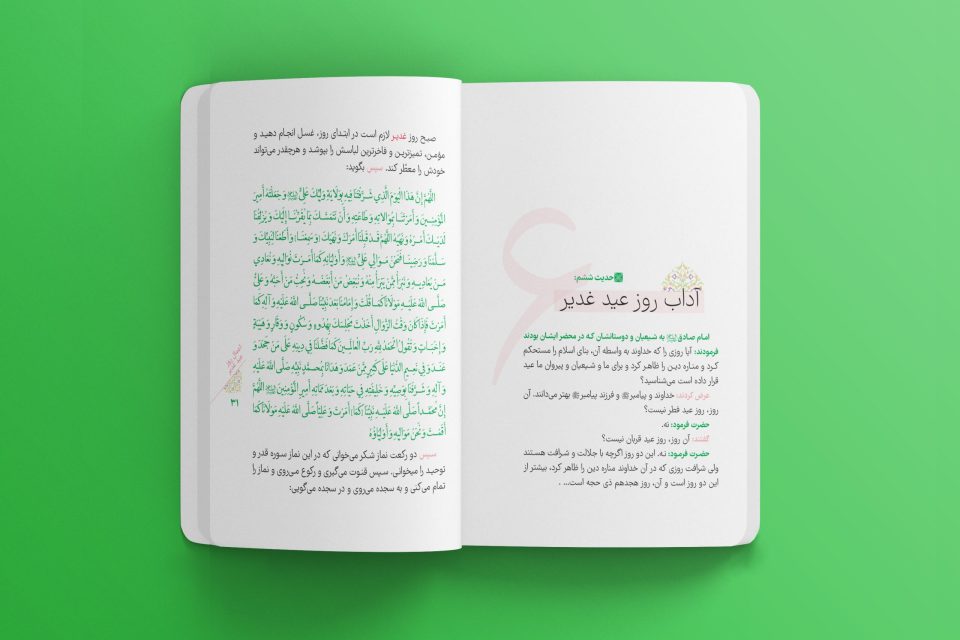 ۶
حدیث ششم:
آداب روز عید غدیر
امام صادق به شیعیان و دوستانشان که در محضر ایشان بودند
فرمودند: آیا روزی را که خداوند به واسطه آن، بنای اسلام را مستحکم
کرد و مناره دین را ظاهر کرد و برای ما و شیعیان و پیروان ما عید
قرار داده است می‌شناسید؟
عرض کردند: خداوند و پیامبرﷺ و فرزند پیامبرﷺ بهتر می‌دانند. آن
روز، روز عید فطر نیست؟
حضرت فرمود: نه.
گفتند: آن روز، روز عید قربان نیست؟
حضرت فرمود: نـه. این دو روز اگرچه با جلالت و شرافت هسـتند
ولی شرافت روزی که در آن خداوند مناره دین را ظاهر کرد، بیشتر از
این دو روز است و آن، روز هجدهم ذی حجه است... .
صبح روز غدیر لازم است در ابتـدای روز، غسل انجام دهید و
مؤمن، تمیزترین و فاخرترین لباسش را بپوشد و هرچقدر می‌تواند
خودش را معطّر کند. سپس بگوید:
اللّهُمَّ إِنَّ هَذَا الْيَوْمَ الَّذِي شَرَّفْتَنَا فِيهِ بِوَلَايَةِ وَلِيِّكَ عَلِيٍّ وَ جَعَلْتَهُ أَمِيرَ
الْمُؤْمِنِينَ وَ أَمَرْتَنَا بِمُوَالاتِهِ وَ طَاعَتِهِ وَ أَنْ نَتَمَسَّكَ بِمَا يُقَرِّبُنَا إِلَيْكَ وَ يُزْلِفُنَا
لَدَيْكَ أَمْرُهُ وَ نَهْيُهُ اللّهُمَّ قَدْ قَبِلْنَا أَمْرَكَ وَ نَهْيَكَ وَ سَمِعْنَا وَ أَطَعْنَا لِنَبِيِّكَ وَ
سَلَّمْنَا وَ رَضِينَا فَنَحْنُ مَوَالِي عَلِيٍّ وَ أَوْلِيَاؤُهُ كَمَا أَمَرْتَ نُوَالِيهِ وَ نُعَادِي
مَنْ يُعَادِيهِ وَ نَبْرَأُ مِمَّنْ يَبْرَأُ مِنْهُ وَ نُبْغِضُ مَنْ أَبْغَضَهُ وَ نُحِبُّ مَنْ أَحَبَّهُ وَ عَلِيٌّ
صَلَّى اللهُ عَلَيْهِ مَوْلَانَا كَمَا قُلْتَ وَ إِمَامُنَا بَعْدَ نَبِيِّنَا صَلَّى اللهُ عَلَيْهِ وَ آلِهِ كَمَا
أَمَرْتَ فَإِذَا كَانَ وَقْتُ الزَّوَالِ أَخَذْتَ مَجْلِسَكَ بِهُدُوءٍ وَ سُكُونٍ وَ وَقَارٍ وَ هَيْبَةٍ
وَ إِخْبَاتٍ وَ تَقُولُ الْحَمْدُ لِلَّهِ رَبِّ الْعَالَمِينَ كَمَا فَضَّلَنَا فِي دِينِهِ عَلَى مَنْ جَحَدَ وَ
عَنَدَ وَ فِي نَعِيمِ الدُّنْيَا عَلَى كَثِيرٍ مِمَّنْ عَمَدَ وَ هَدَانَا بِمُحَمَّدٍ نَبِيِّهِ صَلَّى اللهُ عَلَيْهِ
وَ آلِهِ وَ شَرَّفَنَا بِوَصِيِّهِ وَ خَلِيفَتِهِ فِي حَيَاتِهِ وَ بَعْدَ مَمَاتِهِ أَمِيرِ الْمُؤْمِنِينَ اللّهُمَّ
إِنَّ مُحَمَّداً صَلَّى اللهُ عَلَيْهِ نَبِيُّنَا كَمَا أَمَرْتَ وَ عَلِيّاً صَلَّى اللهُ عَلَيْهِ مَوْلَانَا كَمَا
أَقَمْتَ وَ نَحْنُ مَوَالِيهِ وَ أَوْلِيَاؤُهُ
سپس دو رکعت نماز شکر می‌خوانی که در این نماز سوره قدر و
توحیـد را میخوانی. سپس قنوت می‌گیری و رکوع می‌روی و نماز را
تمام می‌کنی و به سجده می‌روی و در سجده می‌گویی:
اعمال روز
عید غدیر
۳۱